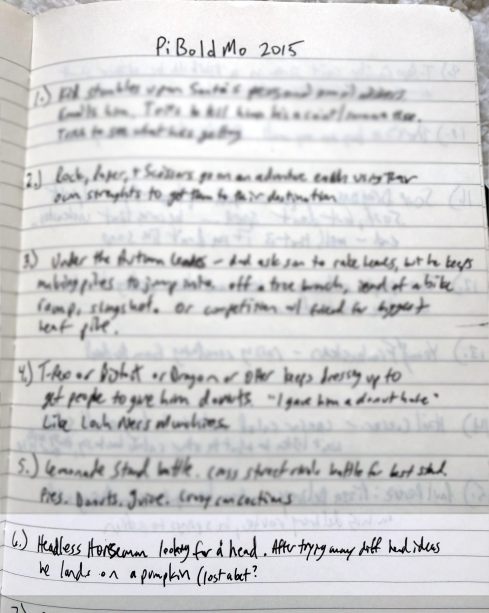 PiBoldMo 2015
1.) Kid stumbles upon Santa's personal email address
Emails him. Tries to
Tries to see what he's getting
2.) Rock, Paper, + Scissors go on an adventure each using their
own strengths to get them to their destination
3.) Under the Autumn Leaves - dad asks son to rake leaves, but he keeps
making piles to jump into. off a tree branch, end of a bike
ramp, slingshot. Or competition w/ friend for biggest
leaf pile.
4.) T-Rex or Bigfoot or Dragon or Otter keeps dressing up to
get people to give him donuts "I gave him a donut hole"
Like Loch Ness Munchies
5.) Lemonade Stand battle. cross street rivals battle for best stand.
Pies. Donuts. Juice. Crazy concoctions
6.) Headless Horseman looking for a head. After trying many diff head ideas
he lands on a pumpkin (lost a bet?
7.)